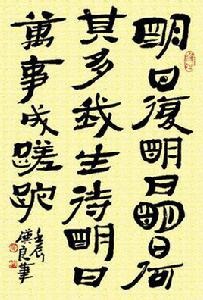 明日復明日明日何
其多我生待明日
萬事成蹉跎
壬辰
良筆